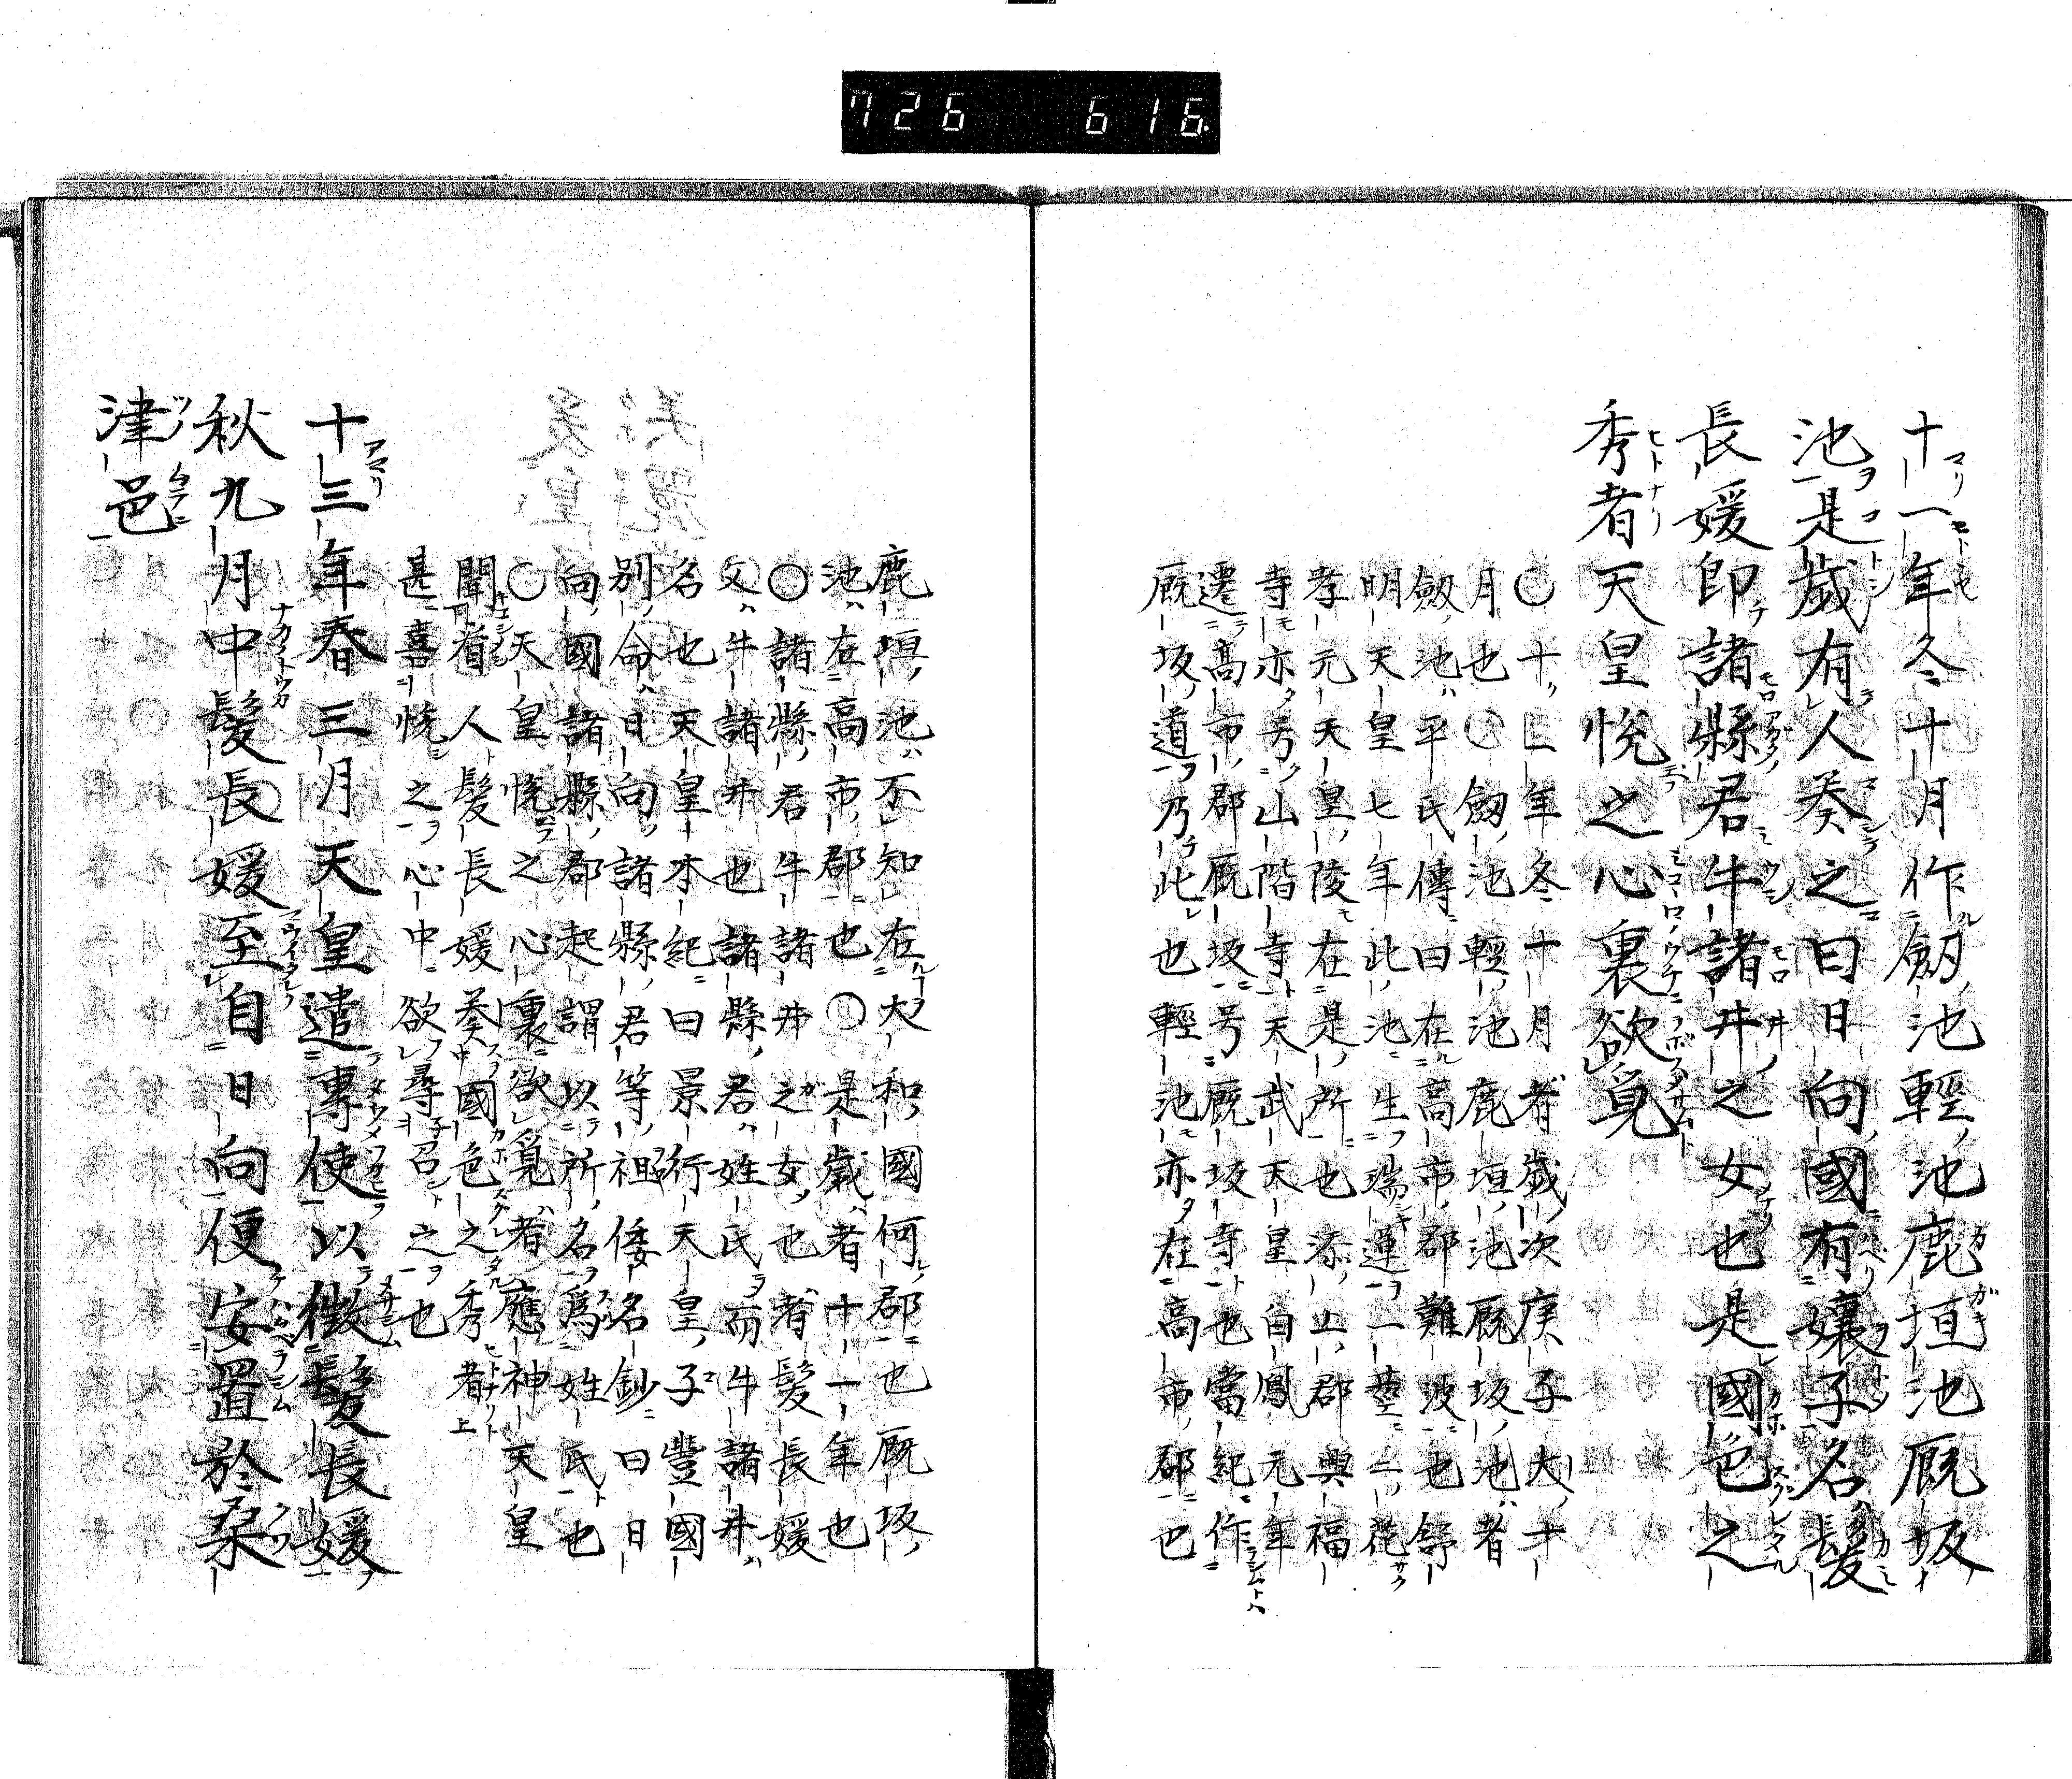 726 616
十一年冬十月作劔池輕池鹿垣池厩坂
池是歳有人奏之曰日向國有孃子名髮
長媛即諸縣君牛諸井之女也是國色之
秀者天皇悦之心裏欲覓
〇十一年冬十月者歳次庚子大十
月也〇劔池輕池鹿垣池厩坂池者
劔池平氏傳曰在高市郡難波也舒
明天皇七年此池生瑞蓮一莖二花
孝元天皇陵在是所也添上郡興福
寺亦号山階寺天武天皇白鳳元年
遷高市郡厩坂号厩坂寺也當紀作
厩坂道乃此也輕池亦在高市郡也
鹿垣池不知在大和國何郡也厩坂
池在高市郡也〇是歳者十一年也
〇諸縣君牛諸井之女也者髮長媛
父牛諸井也諸縣君姓氏而牛諸井
名也天皇本紀曰景行天皇子豐國
別命日向諸縣君等祖倭名鈔曰日
向國諸縣郡起謂以所名爲姓氏也
〇天皇悦之心裏欲覓者應神天皇
聞看人髮長媛奏中國色之秀者上
甚喜悦之心中欲尋召之也
十三年春三月天皇遣專使以徴髮長媛
秋九月中髮長媛至自日向便安置於桒
津邑